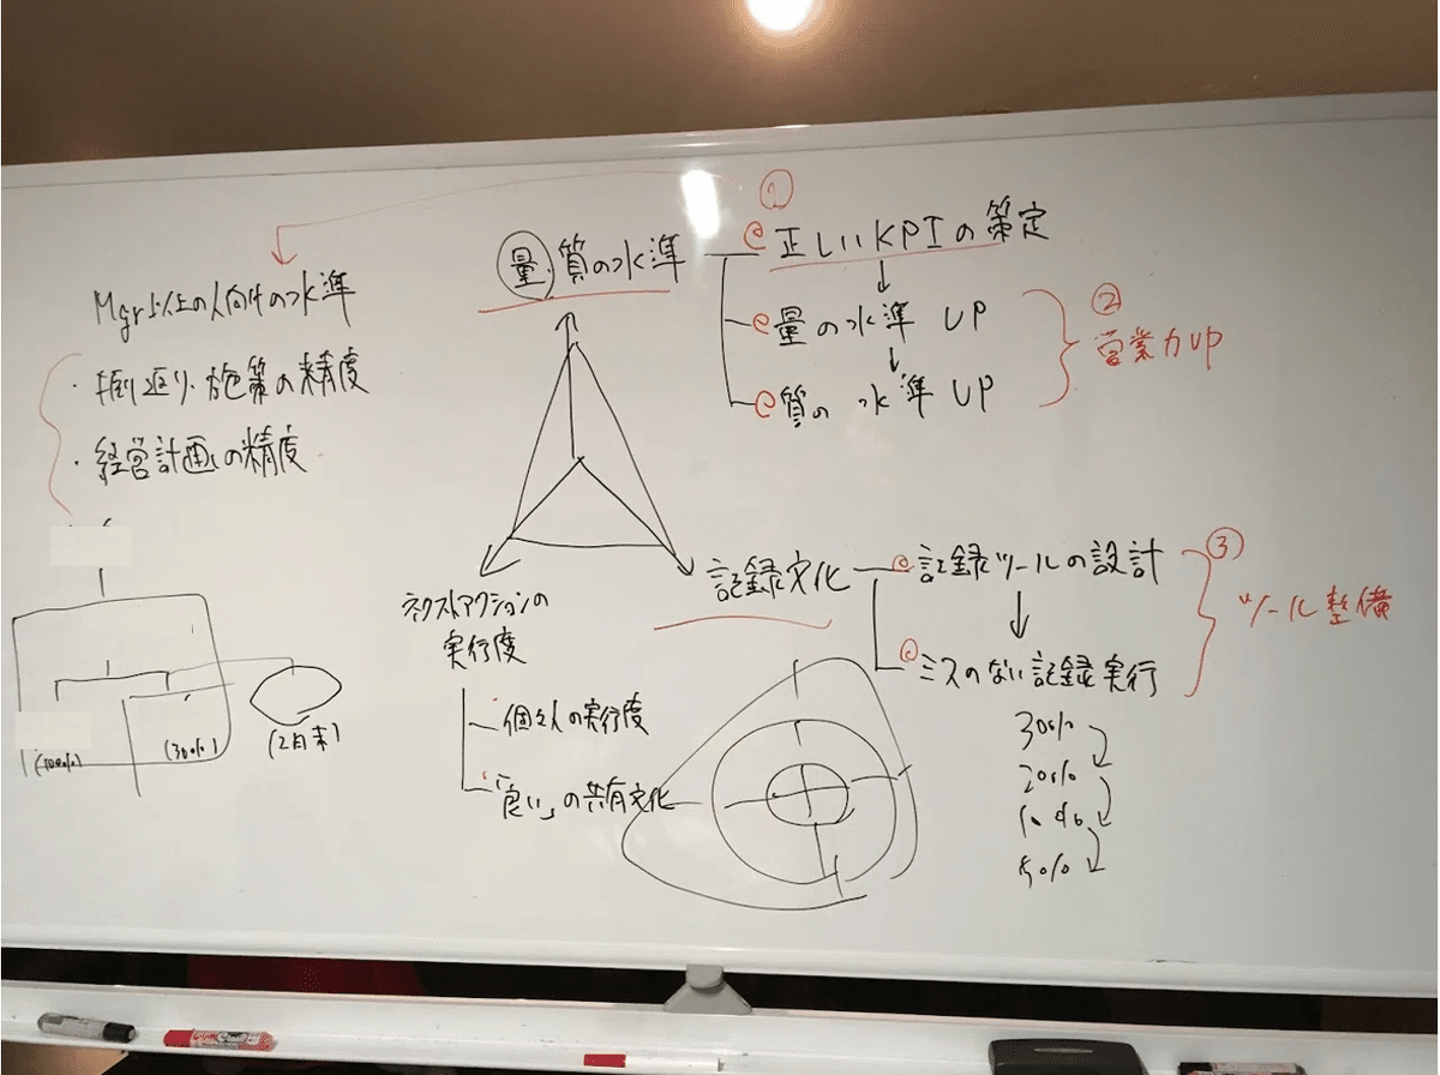 Mgr以上の人向けの水準
・振り返り・施策の精度
・経営計画の精度
(100%)
(30%)
(2月末)
量・質の水準
①
正しいKPIの策定
量の水準 UP
質の水準 UP
②
営業力UP
ネクストアクションの
実行度
個々人の実行度
「良い」の共有文化
記録文化
記録ツールの設計
ミスのない記録実行
③
ツール整備
30%
20%
10%
5%